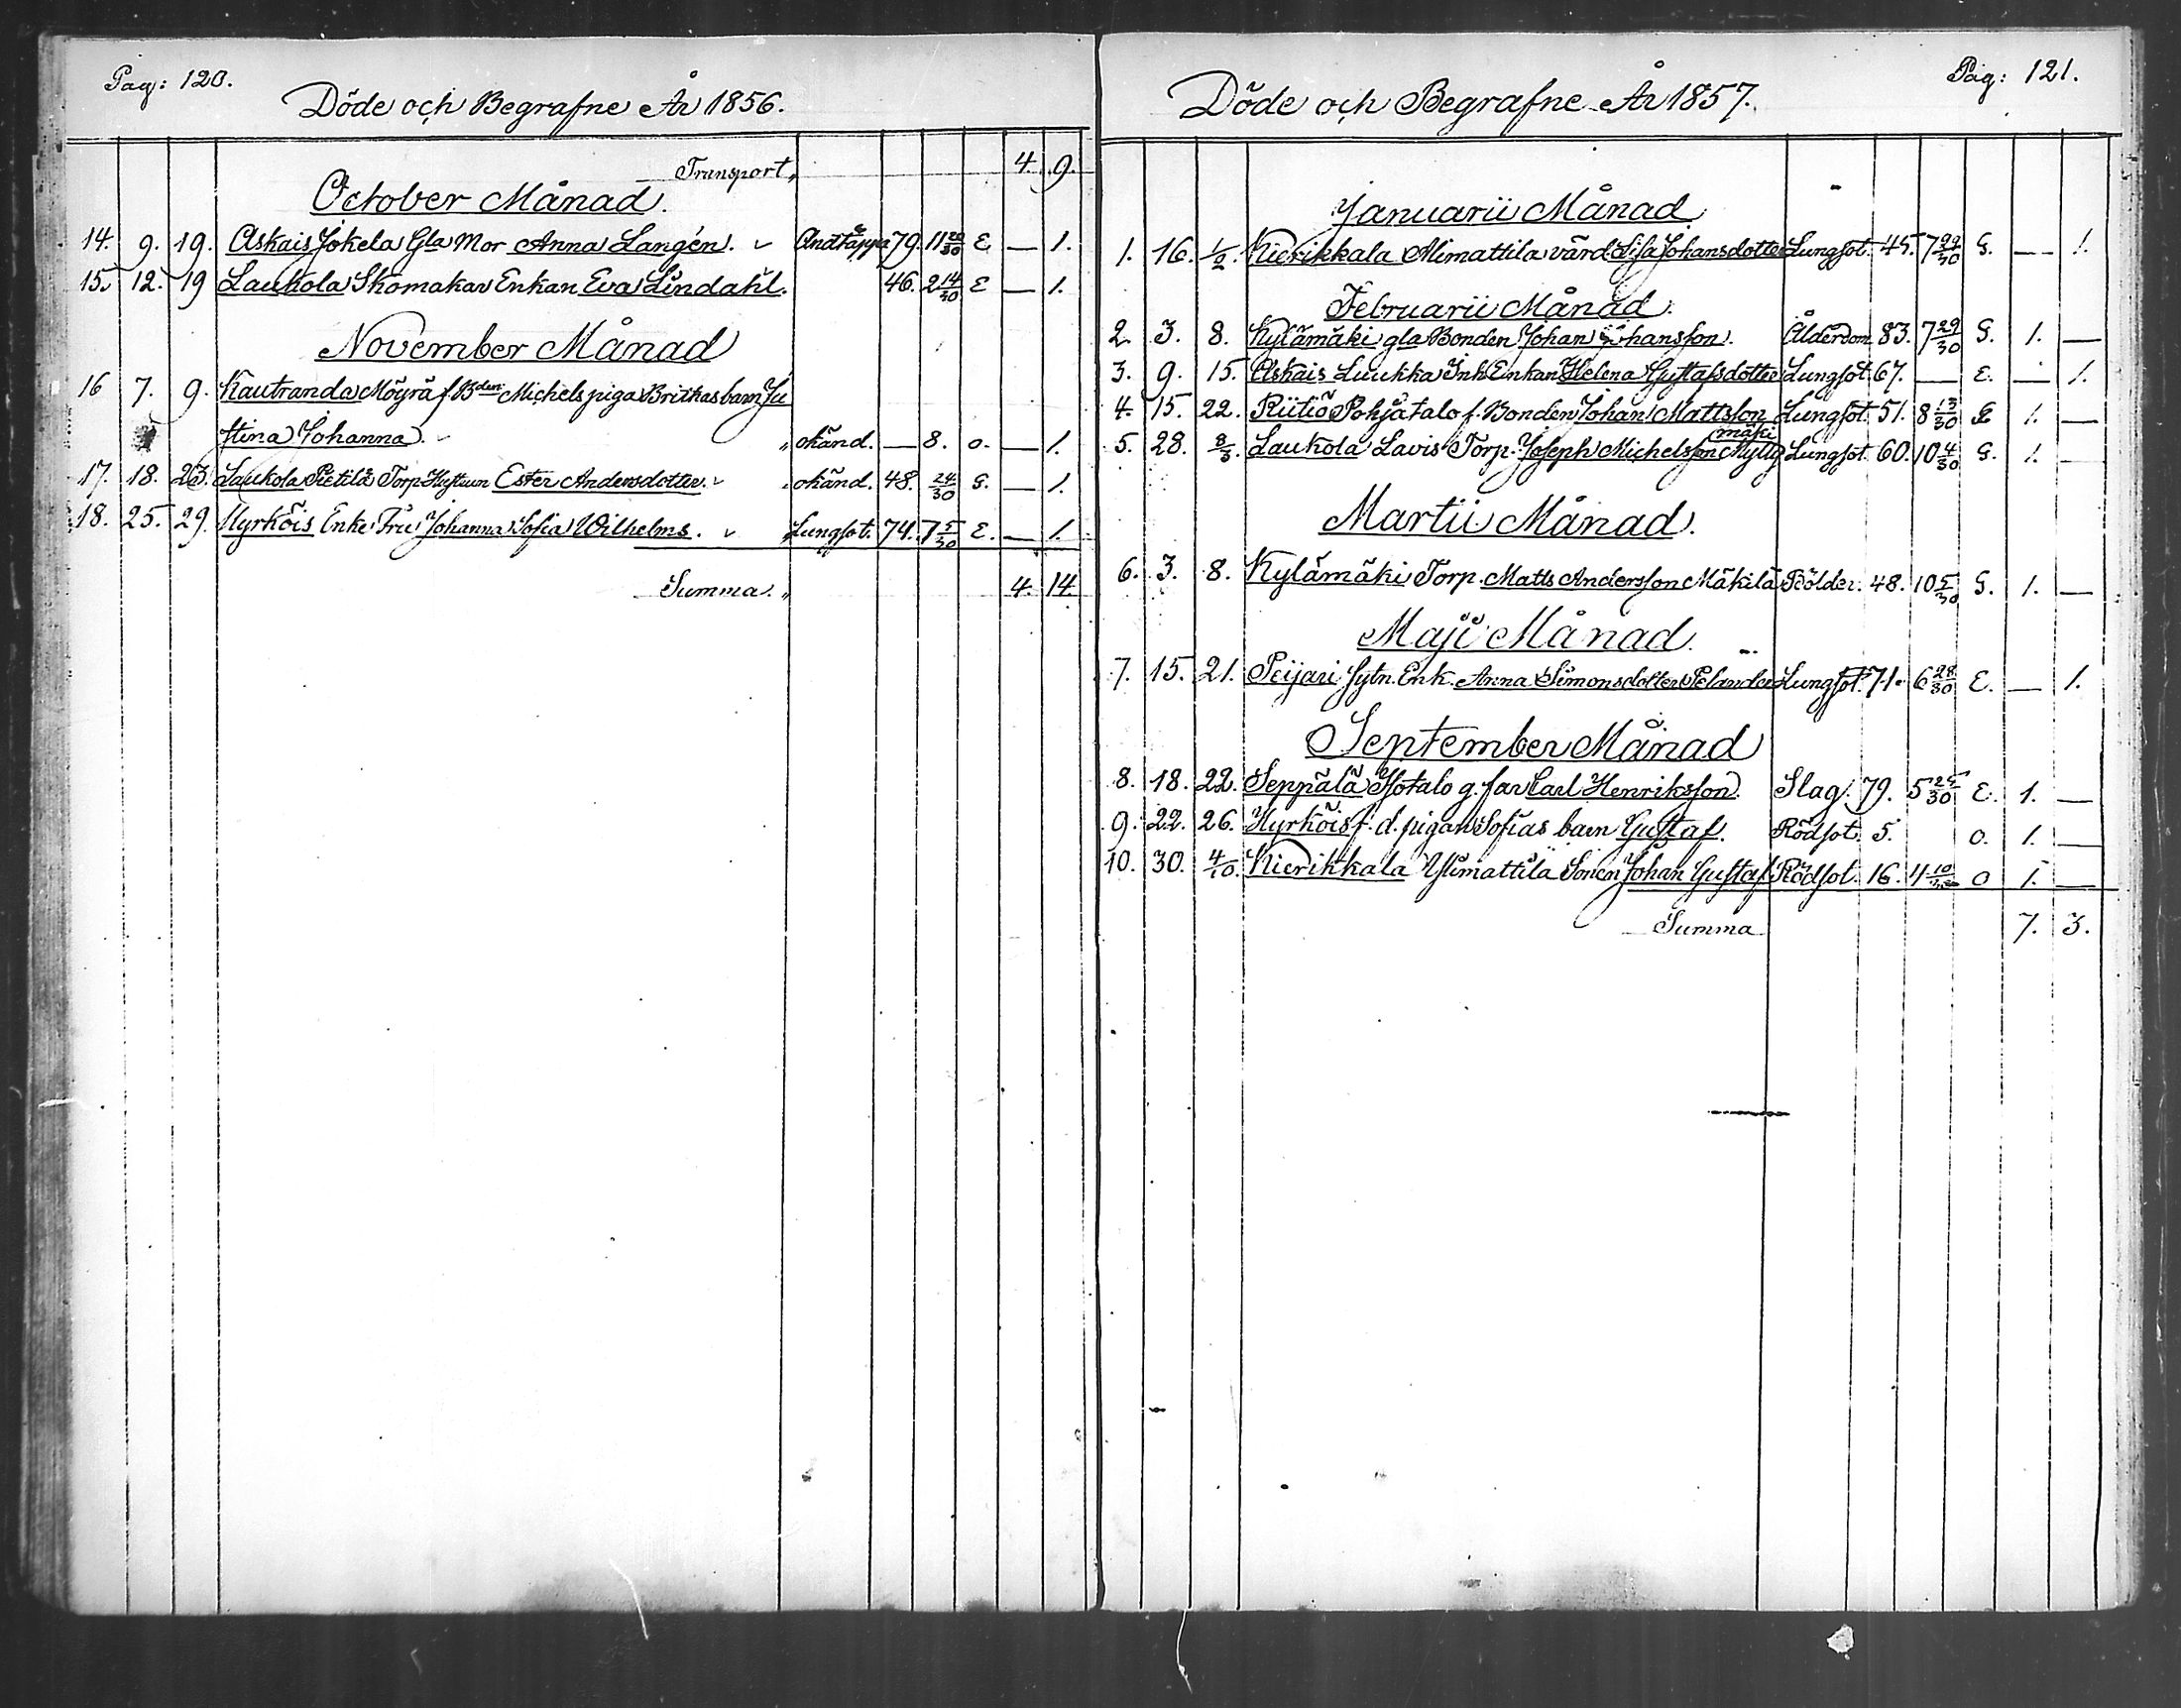 Pag: 120.
Döde och Begrafne År 1856.
Transport „ 4. 9.
October Månad.
14. 9. 19. Askais Jokela Gla Mor Anna Langén. Andtäppa 79. 11 20/30 E — 1.
15. 12. 19 Laukola Skomakar Enkan Eva Lindahl. 46. 2 14/30 E — 1.
November Månad
16 7. 9. Kautranda Möyrä f. Bden Michels piga Britkas barn Ju
stina Johanna. „ okänd. — 8. o. — 1.
17. 18. 23. Laukola Pietilä Torp. Hustrun Ester Andersdotter. okänd. 48. 24/30 G. — 1.
18. 25. 29. Hyrköis Enke Fru Johanna Sofia Wilhelms. Lungsot. 74. 7 5/30 E. — 1.
Summa. „ 4. 14.
Pag: 121.
Döde och Begrafne År 1857.
Januarii Månad
1. 16. 1/2. Kierikkala Alimattila värd. Lisa Johansdotter Lungsot. 45. 7 22/30 G. — 1.
Februarii Månad.
2. 3. 8. Kylämäki gla Bonden Johan Johansson. Ålderdom 83. 7 29/30 G. 1. —
3. 9. 15. Askais Luukka Inh Enkan Helena Gustafsdotter Lungsot. 67. — E. — 1.
4. 15. 22. Riitiö Pohjatalo f. Bonden Johan Mattsson Lungsot. 51. 8 13/30 G 1. —
5. 28. 8/3. Laukola Lavis Torp. Joseph Michelsson Mylly mäki Lungsot. 60. 10 4/30 G. 1. —
Martii Månad.
6. 3. 8. Kylämäki Torp. Matts Andersson Mäkilä Rölder. 48. 10 5/30 G. 1. —
Maji Månad.
7. 15. 21. Peijari sytn. Enk. Anna Simonsdotter Pelander Lungsot. 71. 6 28/30 E. — 1.
September Månad
8. 18. 22. Seppälä Isotalo g. far Carl Henriksson. Slag. 79. 5 25/30 E. 1. —
9. 22. 26. Hyrköis f. d. pigan Sofias barn Gustaf. Rödsot. 5. o. 1. —
10. 30. 4/10. Kierikkala Ylimattila Sonen Johan Gustaf Rödsot. 16. 4 10/30 o 1. —
Summa 7. 3.